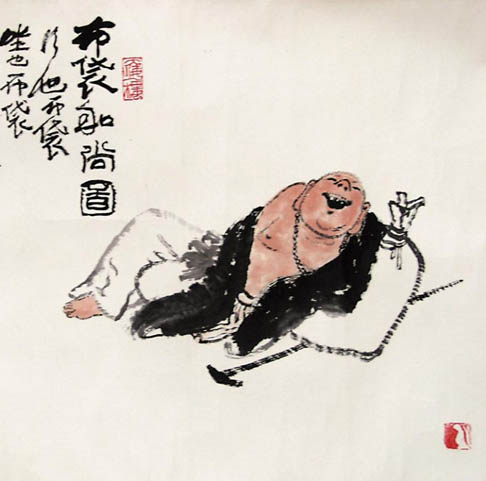 布袋和尚图
行也布袋
坐也布袋